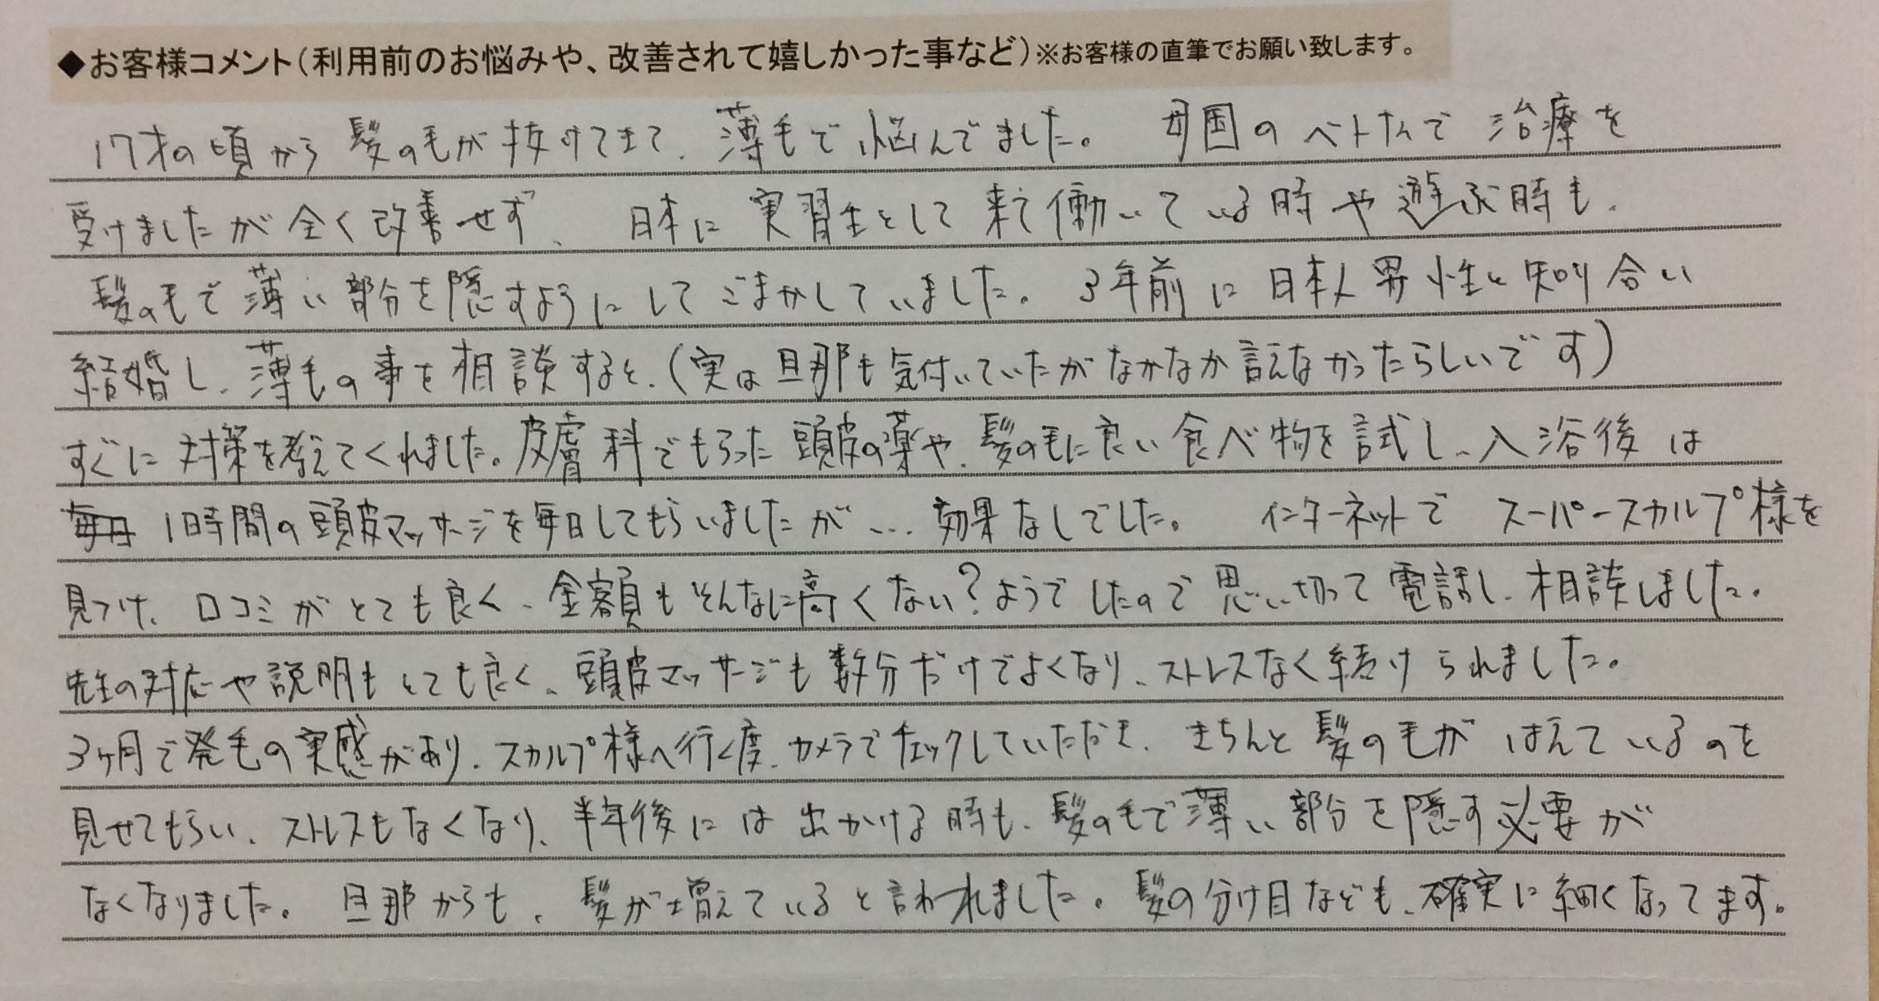 ◆お客様コメント(利用前のお悩みや、改善されて嬉しかった事など)※お客様の直筆でお願い致します。
17才の頃から髪の毛が抜けてきて、薄毛で悩んでました。 母国のベトナムで治療を
受けましたが全く改善せず、 日本に実習生として来て働いている時や遊ぶ時も、
髪の毛で薄い部分を隠すようにしてごまかしていました。3年前に日本人男性と知り合い
結婚し、薄毛の事を相談すると、(実は旦那も気付いていたがなかなか言えなかったらしいです)
すぐに対策を考えてくれました。皮膚科でもらった頭皮の薬や、髪の毛に良い食べ物を試し、入浴後は
毎日 1時間の頭皮マッサージを毎日してもらいましたが… 効果なしでした。 インターネットで スーパースカルプ様を
見つけ、口コミがとても良く、金額もそんなに高くない?ようでしたので思い切って電話し、相談しました。
先生の対応や説明もとても良く、頭皮マッサージも数分だけでよくなり、ストレスなく続けられました。
3ヶ月で発毛の実感があり、スカルプ様へ行く度、カメラでチェックしていただき、きちんと髪の毛がはえているのを
見せてもらい、ストレスもなくなり、半年後には出かける時も、髪の毛で薄い部分を隠す必要が
なくなりました。 旦那からも、髪が増えていると言われました。髪の分け目なども、確実に細くなってます。